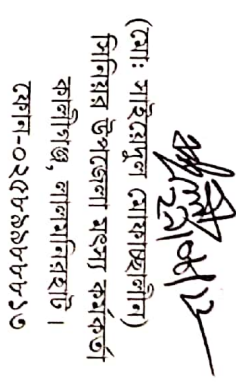 (মোঃ সাইয়েদুল মোফাচ্ছালীন)
সিনিয়র উপজেলা মৎস্য কর্মকর্তা
কালীগঞ্জ, লালমনিরহাট ।
ফোন-০২৫৮৯৯৮৮৮১৩